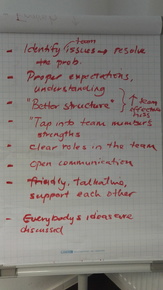 - Identify team issues → resolve
the prob.
- Proper expectations,
understanding
- "Better structure" } ↑ team
effectiveness
- "Tap into team members
strengths
- Clear roles in the team
- open communication
- friendly,
support each other
- Everybody's ideas are
discussed